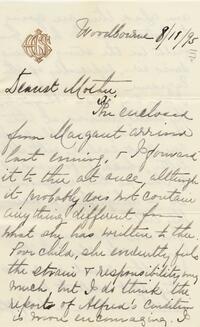 Woodbourne 8/18/95
Dearest Mother,
The enclosed
from Margaret arrived
last evening, & I forward
it to thee at once, although
it probably does not contain
anything different from
what she has written to thee
Poor child, she evidently feels
the strain & responsibility very
much, but I do think the
reports of Alfred's condition
is more encouraging. I